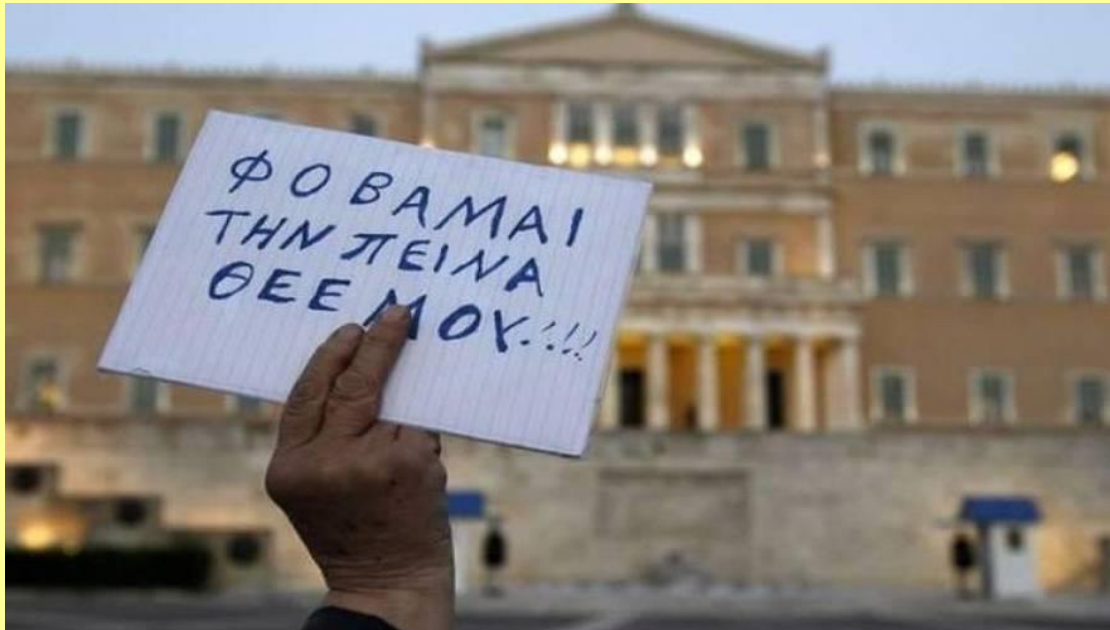 ΦΟΒΑΜΑΙ
ΤΗΝ ΠΕΙΝΑ
ΘΕΕ ΜΟΥ..!!!